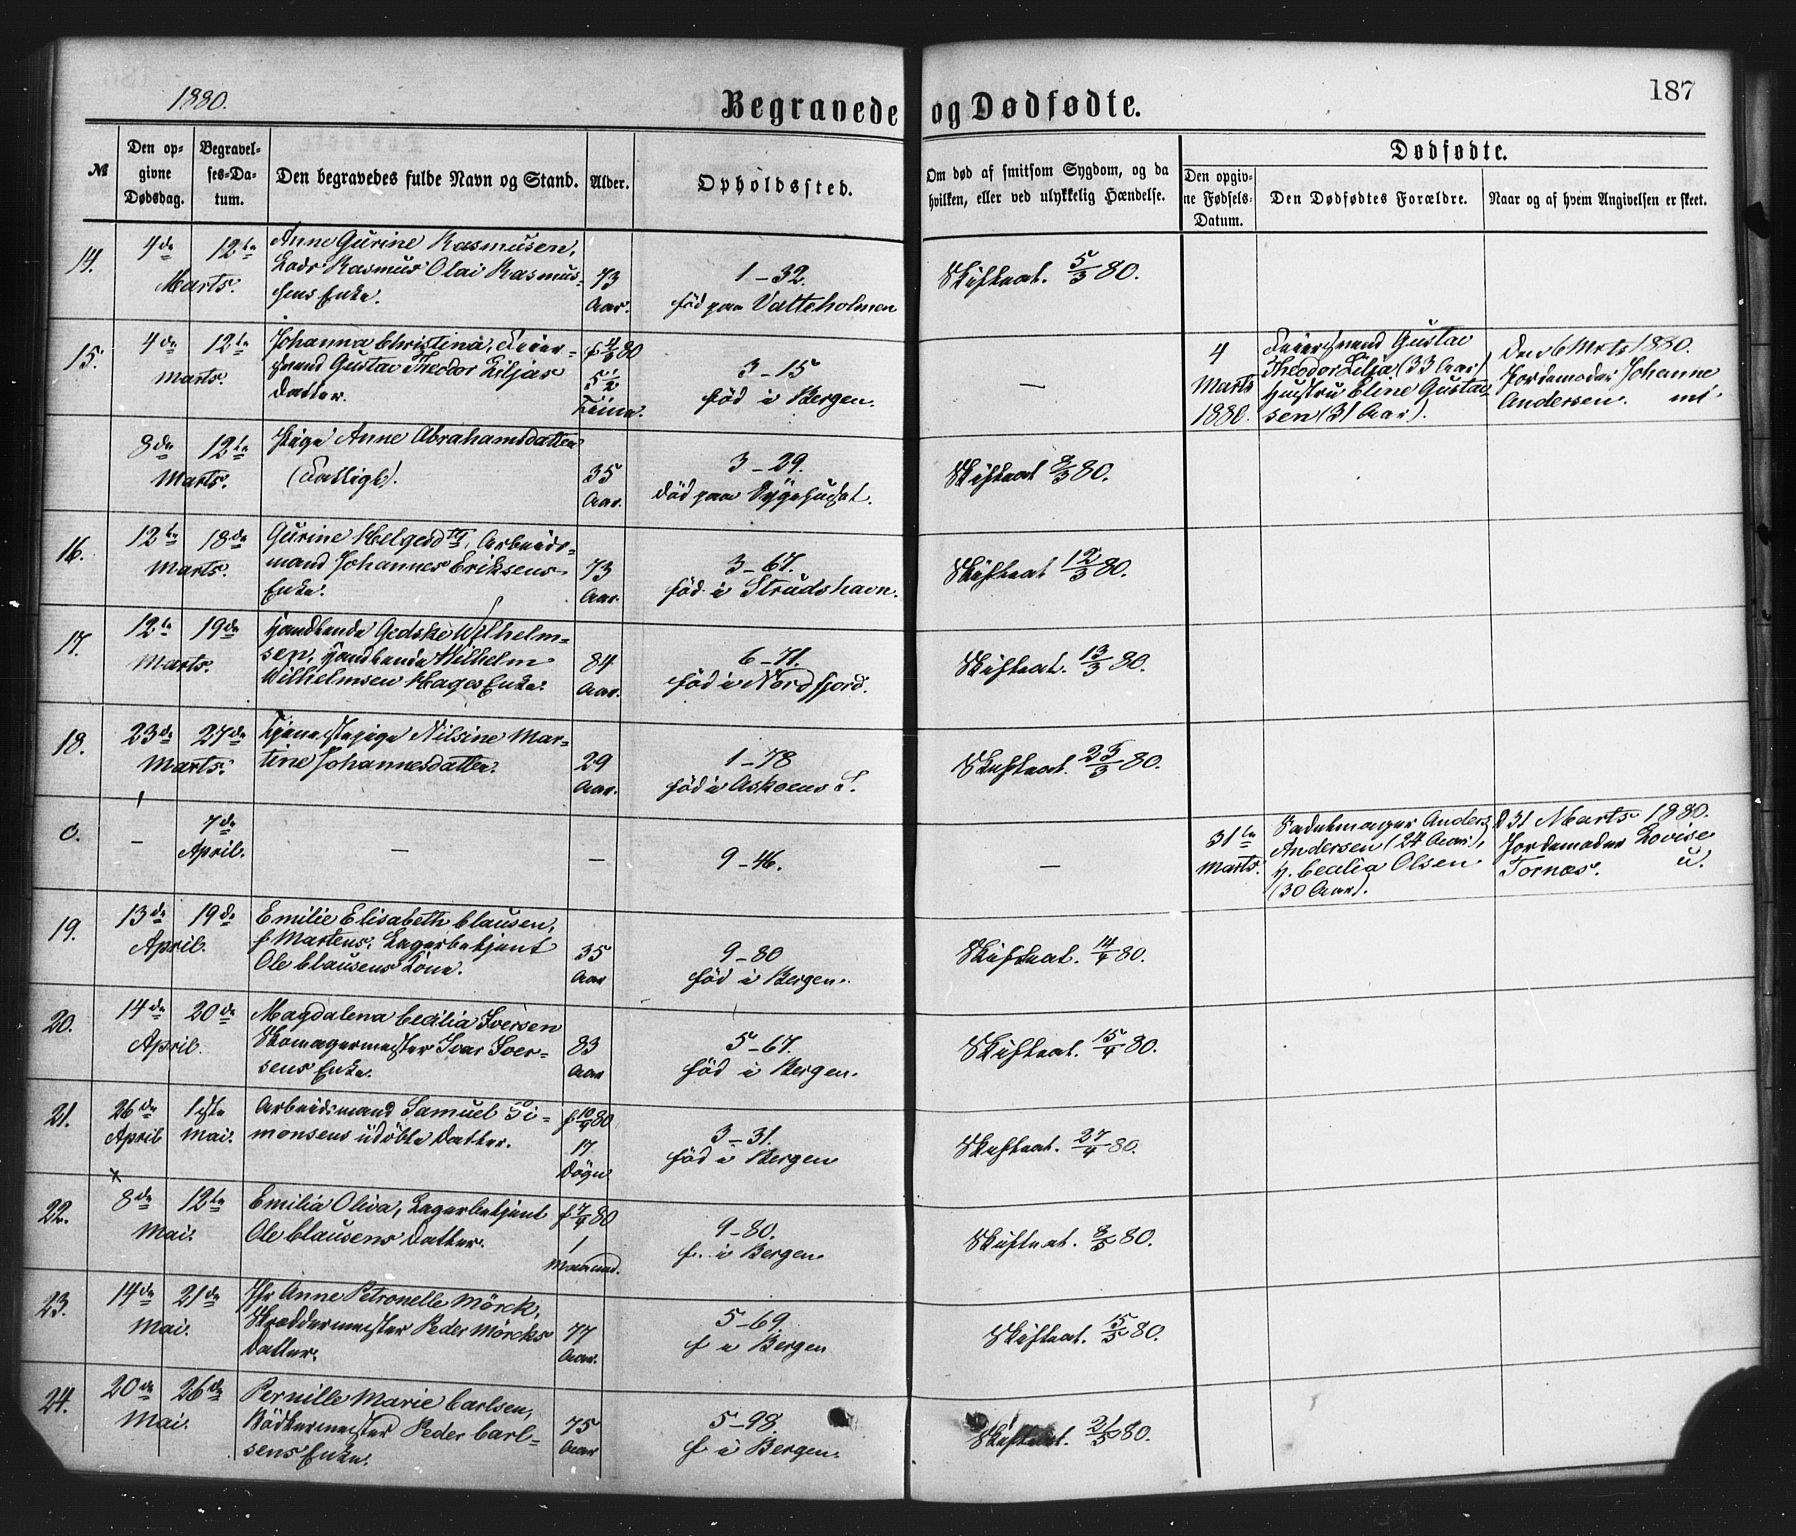 1880.
Begravede og Dødfødte.
187
№
Den opgivne Dødsdag.
Begravelses-Datum.
Den begravedes fulde Navn og Stand.
Alder.
Opholdssted.
Om død af smitsom Sygdom, og da
hvilken, eller ved ulykkelig Hændelse.
Dødfødte.
Den opgivne Fødsels-Datum.
Den Dødfødtes Forældre.
Naar og af hvem Angivelsen er skeet.
14. 4de 12te Anne Gurine Rasmusen,
Marts. Lods Rasmus Olai Rasmus- 73 1-32. Skifteat. 5/3 80.
sens Enke. Aar. fød paa Valteholmen
15. 4de 12te Johanna Christina, Feier- f 4/3 80
Marts. svend Gustav Theodor Liljas 5 1/2 3-15 —
Datter. Timer. fød i Bergen.
4 Marts 1880.
Feiersvend Gustav
Theodor Lilja (33 Aar)
Hustru Eline Gustav-
sen (31 Aar).
Den 6 Mrts 1880.
Jordemoder Johanne
Andersen.
8de 12te Pige Anne Abrahamsdatter 3-29.
Marts. (Fattige). 35 Aar. død paa Sygehuset. Skifteat 8/3 80.
16. 12te 18de Gurine Helgesdtr, Arbeids-
Marts. mand Johannes Eriksens 73 3-67. Skifteat 12/3 80.
Enke. Aar. fød i Strudshavn.
17. 12te 19de Handlende Gedske Wilhelm-
Marts. sen, Handlende Wilhelm 84 6-71. Skifteat. 13/3 80.
Wilhelmsen Hages Enke. Aar. fød i Nordfjord.
18. 23de 27de Tjenestepige Nilsine Mar-
Marts. tine Johannesdatter. 29 1-78 Skifteat. 23/3 80.
Aar. fød i Askøens S.
0. — 7de April. — — 9-46. —
31te Marts.
Sadelmager Anders
Andersen (24 Aar),
H. Cecilia Olsen
(30 Aar).
D 31 Marts 1880.
Jordemoder Lovise
Tornæs. u.
19. 13de 19de Emilie Elisabeth Clausen,
April. f Martens, Lagerbetjent 35 9-80 Skifteat. 14/4 80.
Ole Clausens Kone. Aar fød i Bergen.
20. 14de 20de Magdalena Cecilia Iversen
April. Skomagermester Ivar Iver- 83 5-67. Skifteat. 15/4 80.
sens Enke. Aar fød i Bergen.
21. 26de 1ste Arbeidsmand Samuel Si- f 10/4 80
April Mai. monsens udøbte Datter. 17 3-31. Skifteat. 27/4 80.
Døgn fød i Bergen
×
22. 8de 12te Emilia Oliva, Lagerbetjent f 7/4 80
Mai. Ole Clausens Datter. 1 9-80. Skifteat. 8/5 80.
Maaned. f. i Bergen
23. 14de 21de Jfr Anne Petronelle Mörck,
Mai. Skræddermester Peder Mörcks 77 5-69. Skifteat. 15/5 80.
Datter. Aar. f i Bergen
24. 20de 26de Pernille Marie Carlsen,
Mai. Bödkermester Peder Carl- 75 5-98. Skifteat. 21/5 80.
sens Enke. Aar f i Bergen.